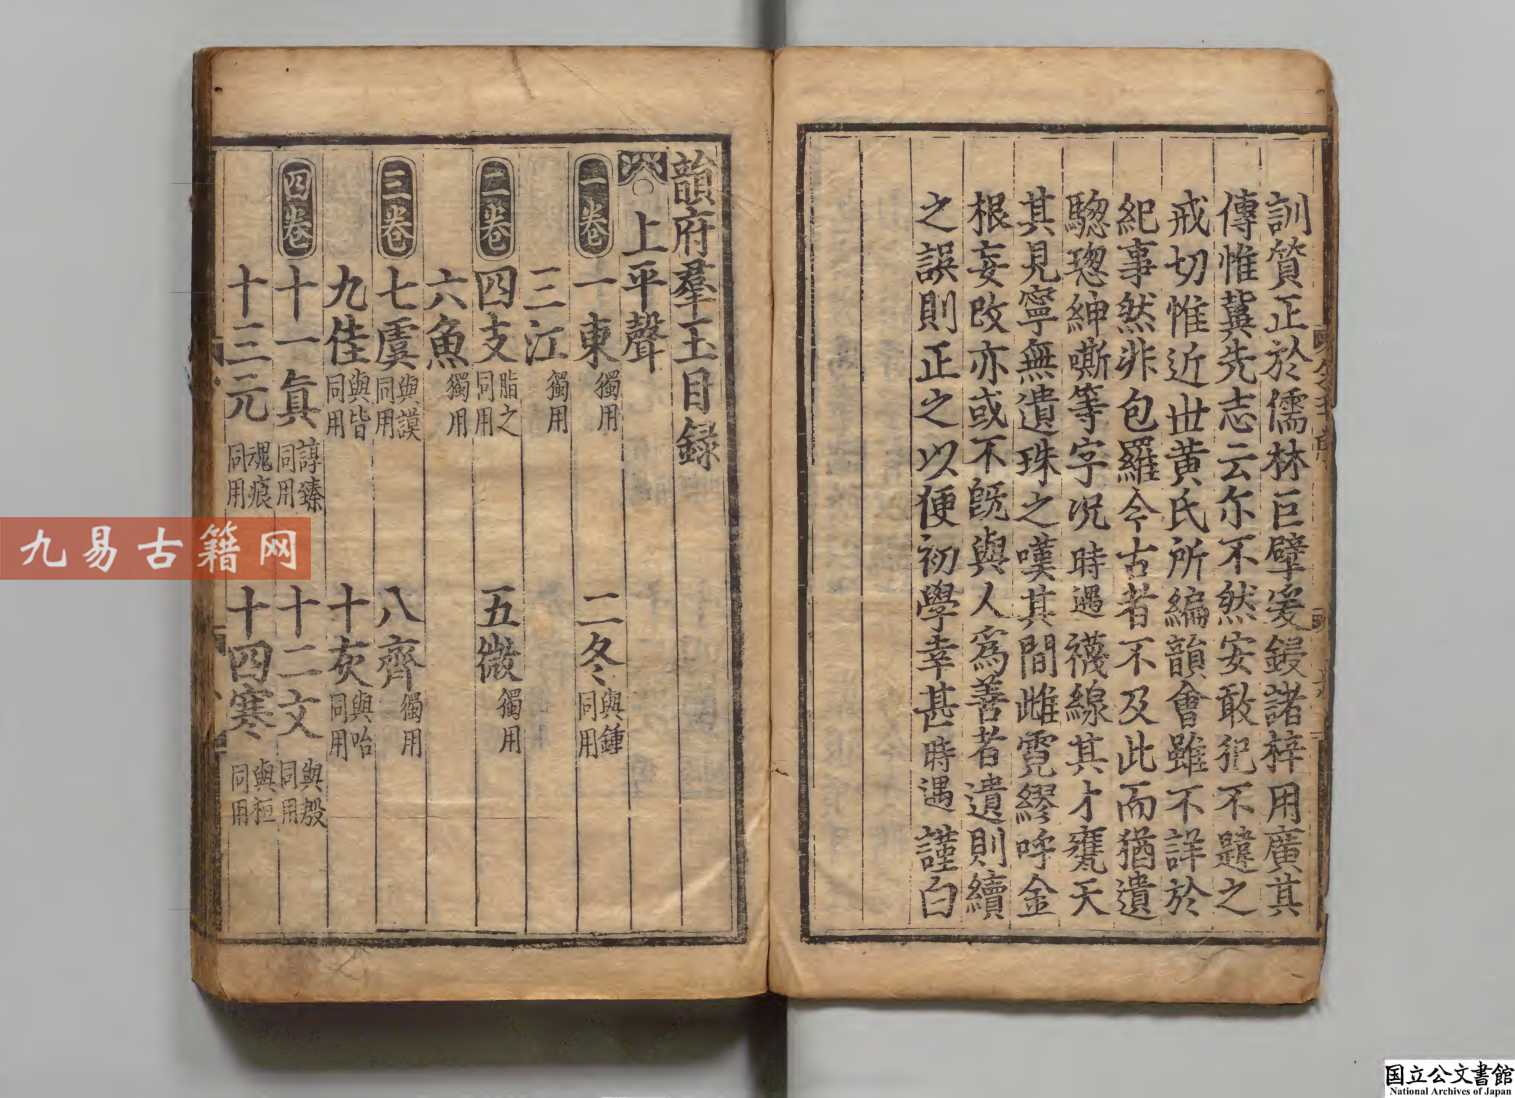 訓質正於儒林巨擘爰鋟諸梓用廣其
傳惟冀先志云尓不然安敢犯不韙之
戒切惟近世黄氏所編韻會雖不詳於
紀事然非包羅今古者不及此而猶遺
驄璁紳嘶等字况時遇襪線其才甕天
其見寧無遺珠之嘆其間雌霓繆呼金
根妄改亦或不旣與人爲善者遺則續
之誤則正之以便初學幸甚時遇謹白
韻府羣玉目錄
上平聲
一卷 一東獨用 二冬與鍾同用
三江獨用
二卷 四支脂之同用 五微獨用
六魚獨用
三卷 七虞與謨同用 八齊獨用
九佳與皆同用 十灰與咍同用
四卷 十一眞諄臻同用 十二文與殷同用
十三元魂痕同用 十四寒與桓同用
九易古籍网
国立公文書館
National Archives of Japan